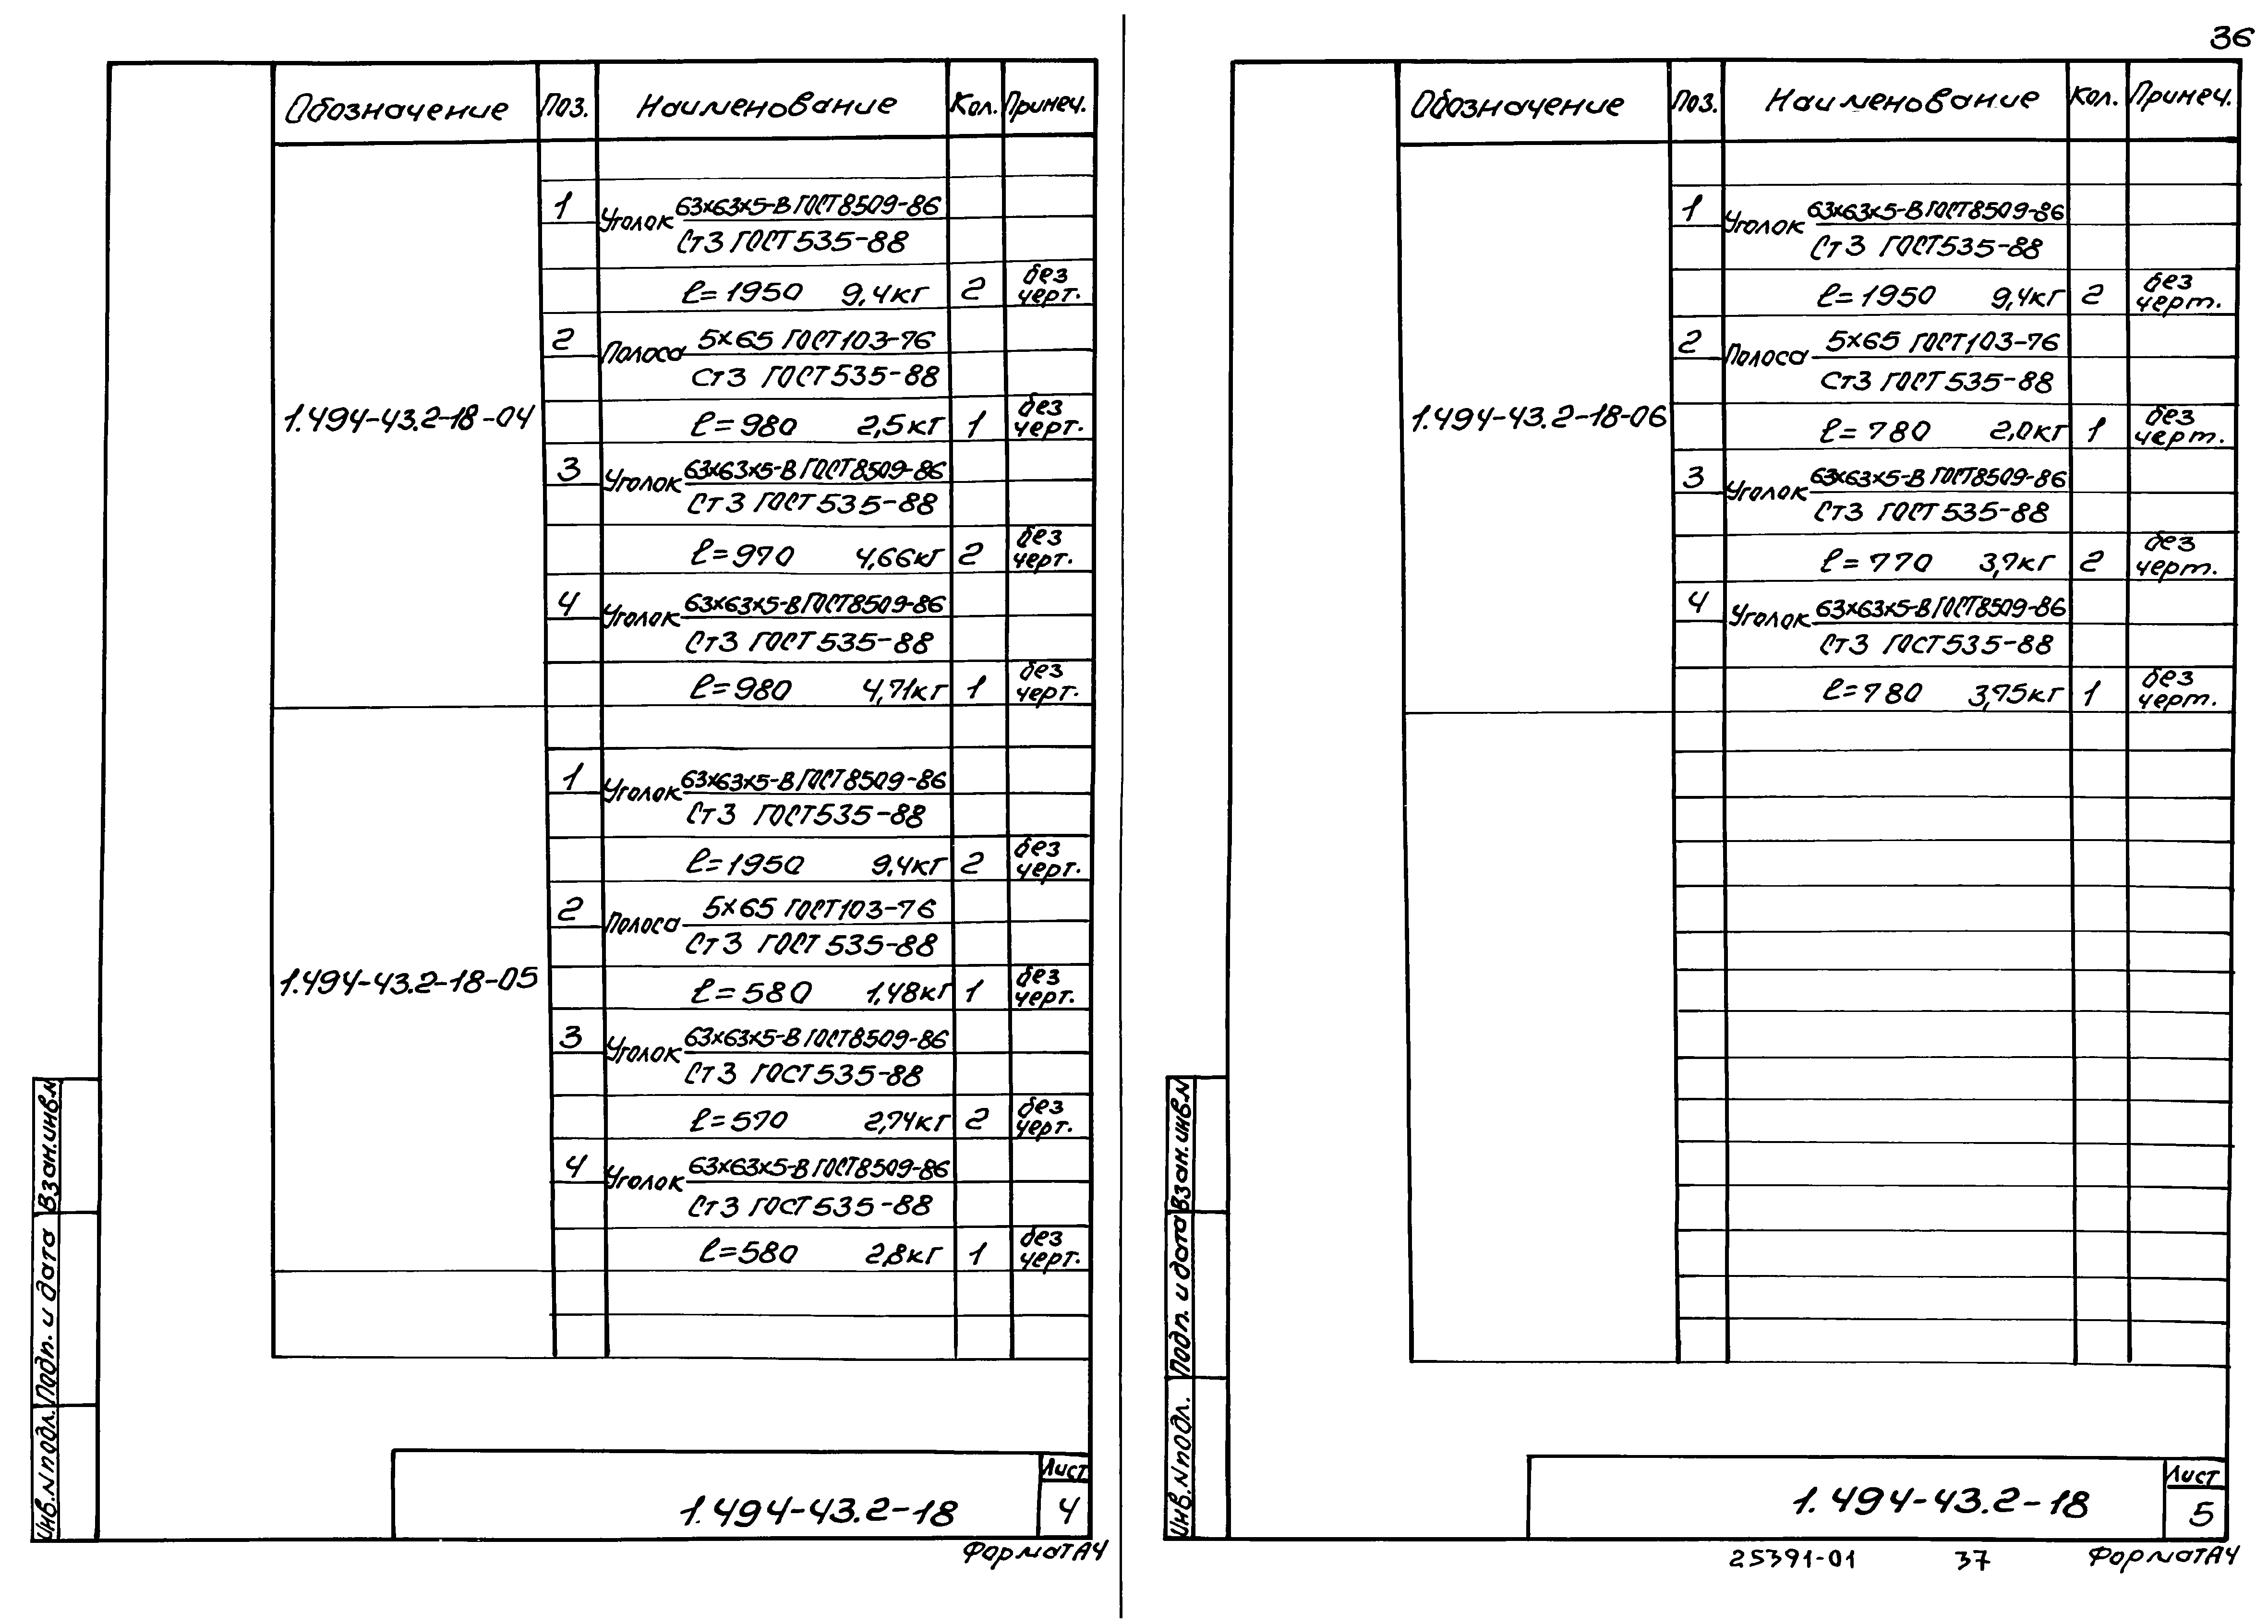 36
Обозначение Поз. Наименование Кол. Примеч.
1 Уголок 63×63×5-В ГОСТ 8509-86
Ст3 ГОСТ 535-88
ℓ=1950 9,4кг 2 без черт.
2 Полоса 5×65 ГОСТ 103-76
Ст3 ГОСТ 535-88
1.494-43.2-18-04 ℓ=980 2,5кг 1 без черт.
3 Уголок 63×63×5-В ГОСТ 8509-86
Ст3 ГОСТ 535-88
ℓ=970 4,66кг 2 без черт.
4 Уголок 63×63×5-В ГОСТ 8509-86
Ст3 ГОСТ 535-88
ℓ=980 4,71кг 1 без черт.
1 Уголок 63×63×5-В ГОСТ 8509-86
Ст3 ГОСТ 535-88
ℓ=1950 9,4кг 2 без черт.
2 Полоса 5×65 ГОСТ 103-76
Ст3 ГОСТ 535-88
1.494-43.2-18-05 ℓ=580 1,48кг 1 без черт.
3 Уголок 63×63×5-В ГОСТ 8509-86
Ст3 ГОСТ 535-88
ℓ=570 2,74кг 2 без черт.
4 Уголок 63×63×5-В ГОСТ 8509-86
Ст3 ГОСТ 535-88
ℓ=580 2,8кг 1 без черт.
Взан.инв.N
Подп. и дата
Инв.N подл.
1.494-43.2-18
Лист
4
Формат А4
Обозначение Поз. Наименование Кол. Примеч.
1 Уголок 63×63×5-В ГОСТ 8509-86
Ст3 ГОСТ 535-88
ℓ=1950 9,4кг 2 без черт.
2 Полоса 5×65 ГОСТ 103-76
Ст3 ГОСТ 535-88
1.494-43.2-18-06 ℓ=780 2,0кг 1 без черт.
3 Уголок 63×63×5-В ГОСТ 8509-86
Ст3 ГОСТ 535-88
ℓ=770 3,7кг 2 без черт.
4 Уголок 63×63×5-В ГОСТ 8509-86
Ст3 ГОСТ 535-88
ℓ=780 3,75кг 1 без черт.
Взан.инв.N
Подп. и дата
Инв.N подл.
1.494-43.2-18
Лист
5
25391-01 37 Формат А4